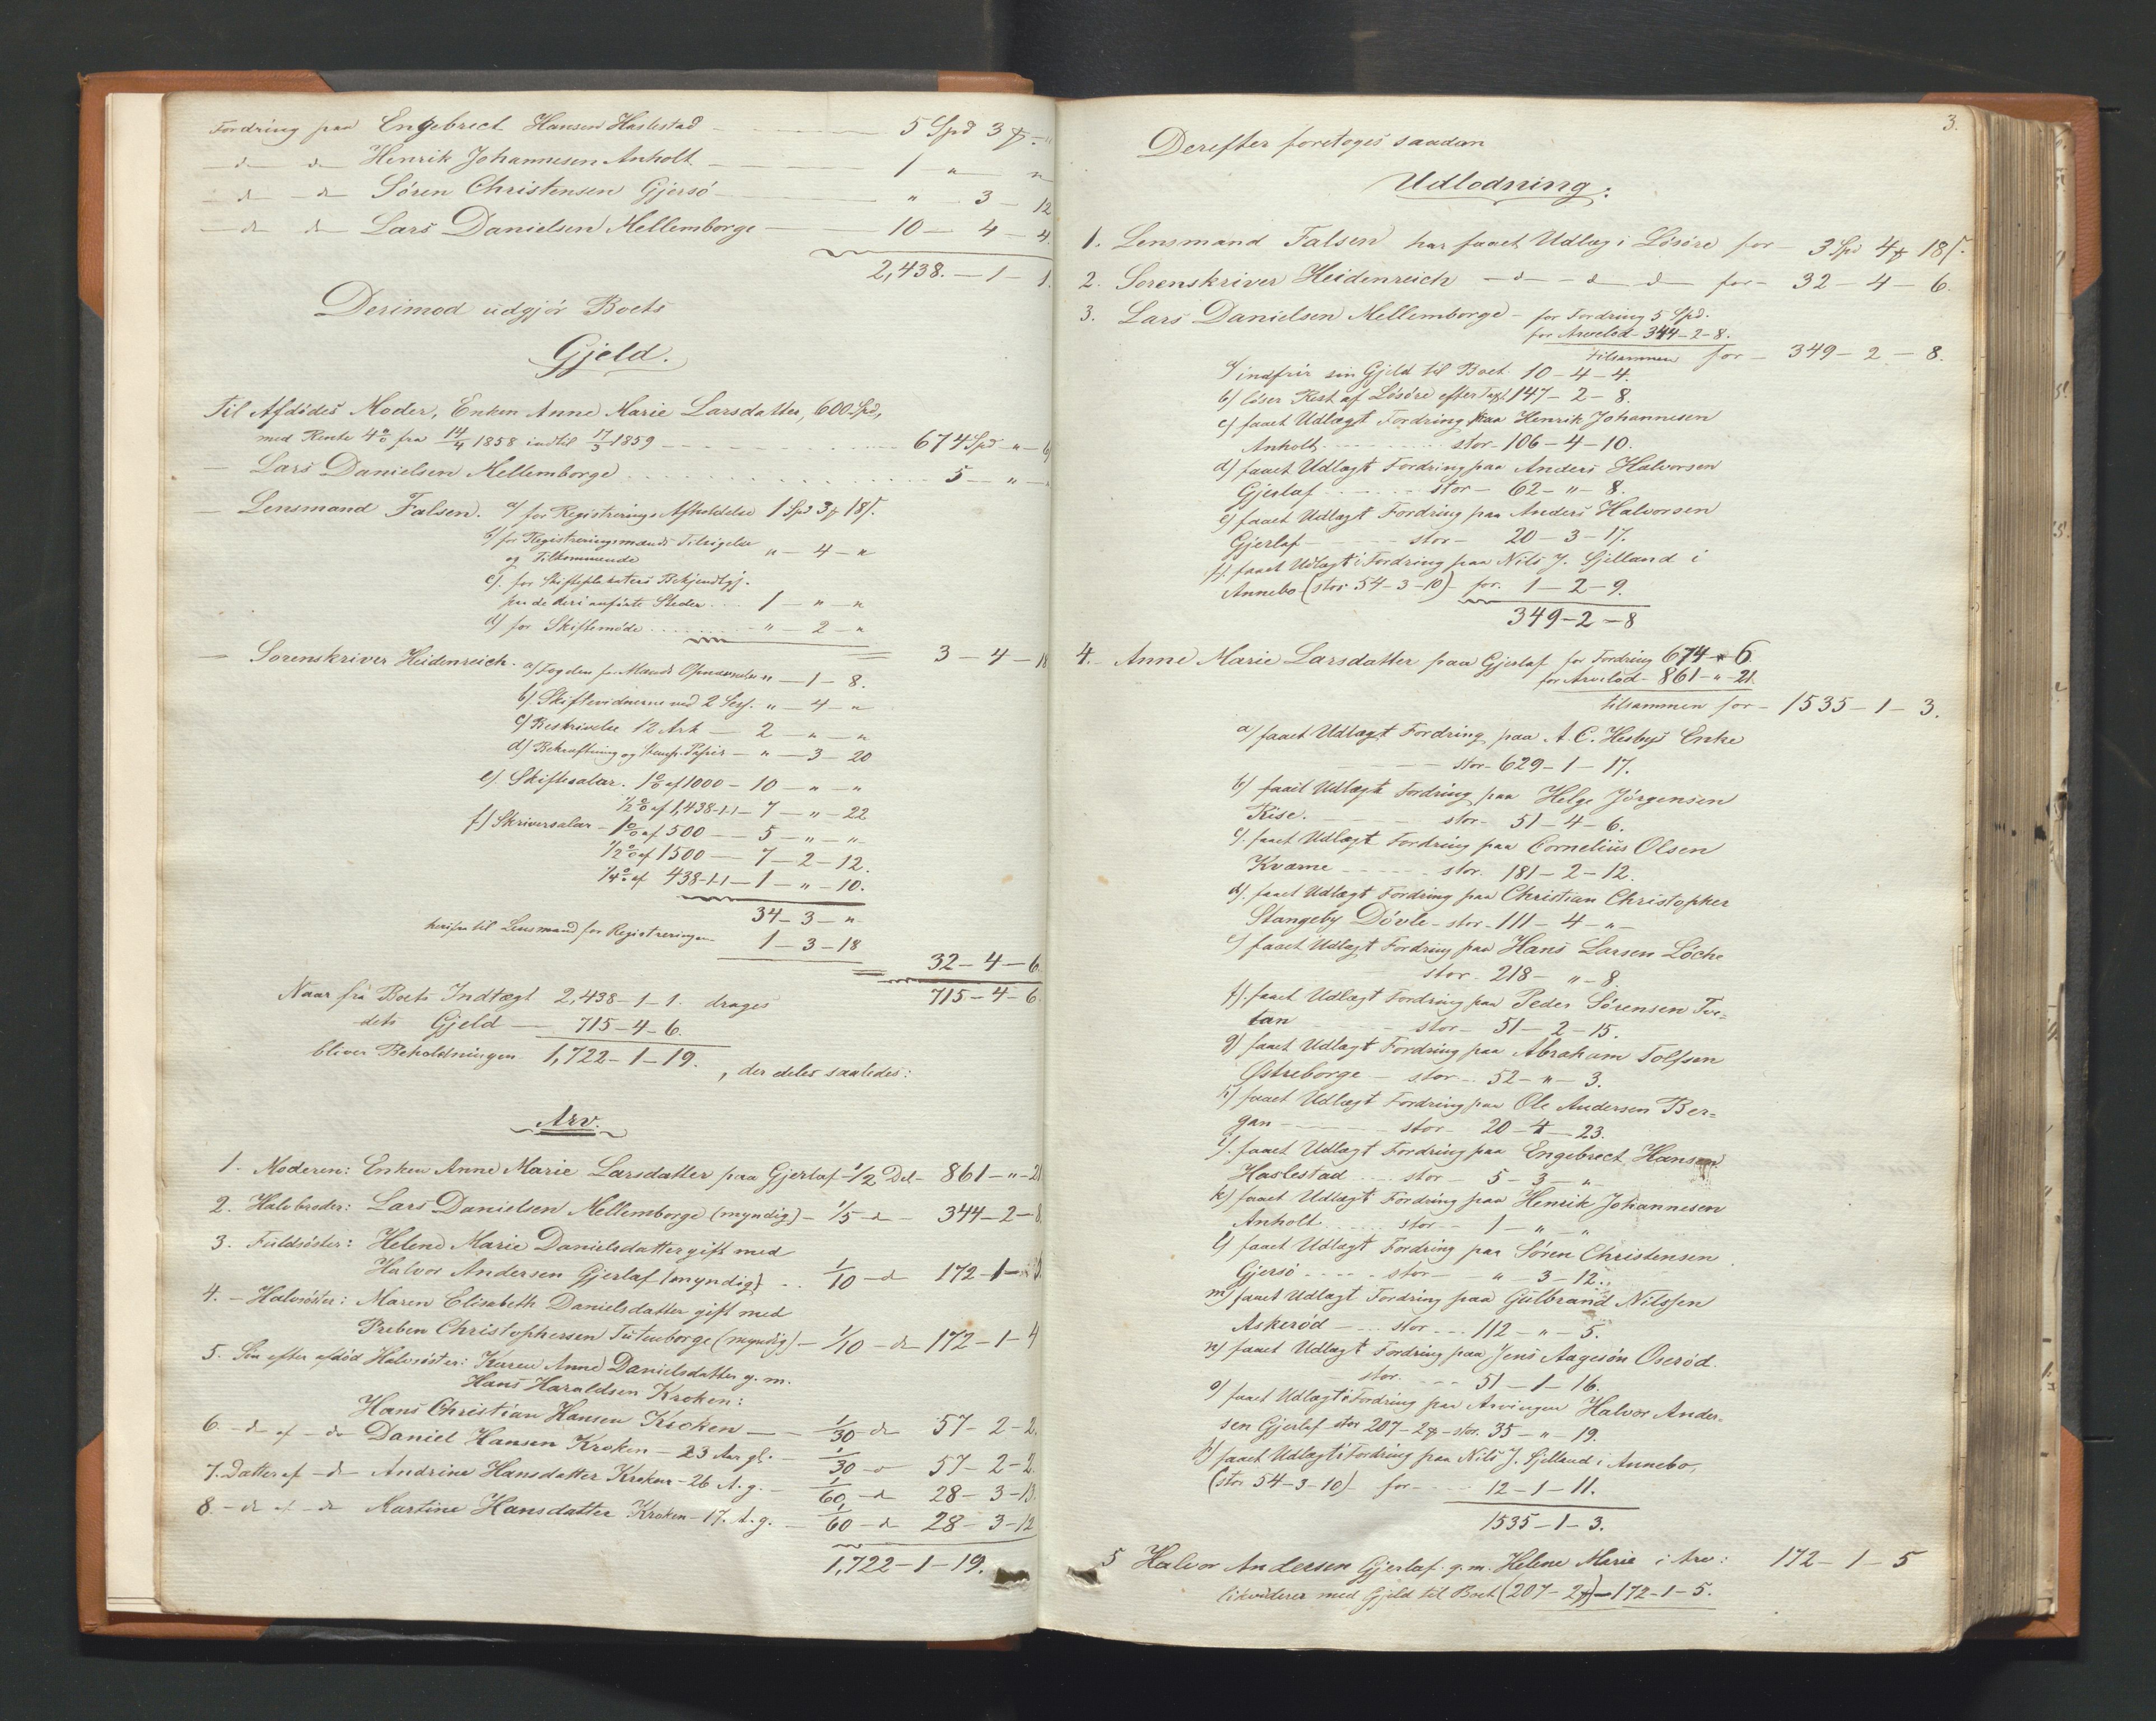 Fordring paa Engebrect Hansen Haslestad — 5 Spd 3 ꝑ - "
— d — d — Henrik Johannesen Anholt — 1 — " — "
— d — d — Søren Christensen Gjersø — " — 3 — 12
— d — d — Lars Danielsen Mellemborge — 10 — 4 — 4.
2,438. — 1 — 1.
Derimod udgjør Boets
Gjeld.
Til Afdødes Moder, Enken Anne Marie Larsdatter, 600 Spd,
med Rente 4 % fra 14/4 1858 indtil 17/5 1859 — 674 Spd — " — 6
— Lars Danielsen Mellemborge . . . . 5 — " — "
— Lensmand Falsen. a/ for Registrerings Afholdelse 1 Spd 3 ꝑ 18 ſ.
b/ for Registreringsmænds Tilsigelse
og Tilkommende " — 4 — "
c/. for Skifteplakaters Bekjendtgj.
paa de deri anførte Steder . . . 1 — " — "
d/ for Skiftemøde . . . . " — 2 — "
3 — 4 — 18
— Sorenskriver Heidenreich. a/ Fogden for Mænds Opnævnelse " — 1 — 8.
b/ Skiftevidnerne ved 2 Sess. " — 4 — "
c/ Beskrivelse 12 Ark — 2 — " — "
d/ Bekræftning og Stemp. Papir — " — 3 — 20
e/. Skiftesalær. 1 % af 1000 — 10 — " — "
1/2 % af 1,438-1-1 — 7 — " — 22
f/ Skriversalær — 1 % af 500 — 5 — " — "
1/2 % af 1500 — 7 — 2 — 12.
1/4 % af 438-1-1 — 1 — " — 10.
34 — 3 — "
herifra til Lensmand for Registreringen 1 — 3 — 18
32 — 4 — 6
715 — 4 — 6.
Naar fra Boets Indtægt 2,438 — 1 — 1. drages
dets Gjeld — 715 — 4 — 6.
bliver Beholdningen 1,722 — 1 — 19. , der deles saaledes:
Arv.
1. Moderen: Enken Anne Marie Larsdatter paa Gjerlaf — 1/2 Del — 861 — " — 21
2. Halvbroder: Lars Danielsen Mellemborge (myndig) — 1/5 — d — 344 — 2 — 8.
3. Fuldsøster: Helene Marie Danielsdatter gift med
Halvor Andersen Gjerlaf (myndig) . . 1/10 — d 172 — 1 — 5.
4. — Halvsøster: Maren Elisabeth Danielsdatter gift med
Preben Christophersen Tutenborge (myndig) — 1/10 — d — 172 — 1 — 4
5. Søn efter afdød Halvsøster: Karen Anne Danielsdatter g. m.
Hans Haraldsen Kroken:
Hans Christian Hansen Kroken — 1/30 — d — 57 — 2 — 2.
6 — d — af — do Daniel Hansen Kroken — 23 Aar gl. — 1/30 — d 57 — 2 — 2.
7. Datter af — d — Andrine Hansdatter Kroken — 26 A. g. — 1/60 — d 28 — 3 — 13.
8 — d — af — d — Martine Hansdatter Kroken — 17. A. g. — 1/60 — d 28 — 3 — 12
1,722 — 1 — 19.
3.
Derefter foretoges saadan
Udlodning:
1. Lensmand Falsen har faaet Udlæg i Løsøre for — 3 Spd 4 ꝑ 18 ſ.
2. Sorenskriver Heidenreich — d — d — d — for — 32 — 4 — 6.
3. Lars Danielsen Mellemborge — for Fordring 5 Spd.
for Arvelod — 344 — 2 — 8.
tilsammen for — 349 — 2 — 8.
a/ indfrir sin Gjeld til Boet 10 — 4 — 4.
b/ løser Rest af Løsøre efter Taxt 147 — 2 — 8.
c/ faaet Udlagt Fordring paa Henrik Johannesen
Anholt . . . stor — 106 — 4 — 10.
d/ faaet Udlagt Fordring paa Anders Halvorsen
Gjerlaf . . . . stor — 62 — " — 8.
e/ faaet Udlagt Fordring paa Anders Halvorsen
Gjerlaf — stor — 20 — 3 — 17.
f/. faaet Udlagt i Fordring paa Nils J. Gjelland i
Annebo (stor 54 — 3 — 10) for. 1 — 2 — 9.
349 — 2 — 8
4. — Anne Marie Larsdatter paa Gjerlaf for Fordring 674 " 6.
for Arvelod — 861 — " — 21
tilsammen for — 1535 — 1 — 3.
a/ faaet Udlagt Fordring paa A. C. Hesbys Enke
stor — 629 — 1 — 17.
b/ faaet Udlagt Fordring paa Helge Jørgensen
Rise. — stor — 51 — 4 — 6.
c/. faaet Udlagt Fordring paa Cornelius Olsen
Kværne — stor. 181 — 2 — 12.
d/. faaet Udlagt Fordring paa Christian Christopher
Stangeby Døvle — stor — 111 — 4 — " —
e/ faaet Udlagt Fordring paa Hans Larsen Løche
stor. 218 — " — 8.
f/. faaet Udlagt Fordring paa Peder Sørensen Tor=
tan — stor — 51 — 2 — 15.
g/ faaet Udlagt Fordring paa Abraham Tolfsen
Østreborge — stor — 52 — " — 3.
h/ faaet Udlagt Fordring paa Ole Andersen Ber=
gan — stor — 20 — 4 — 23.
i/. faaet Udlagt Fordring paa Engebrect Hansen
Haslestad . . . stor — 5 — 3 — "
k/ faaet Udlagt Fordring paa Henrik Johannesen
Anholt . . . . stor — 1 — " — "
l/ faaet Udlagt Fordring paa Søren Christensen
Gjersø . . . . stor — " — 3 — 12.
m/ faaet Udlagt Fordring paa Gulbrand Nilssen
Askerød — stor . . . 112 — " — 5.
n/ faaet Udlagt Fordring paa Jens Aagesøn Oserød.
stor. — 51 — 1 — 16.
o/ faaet Udlagt i Fordring paa Arvingen Halvor Ander=
sen Gjerlaf stor 207 — 2 ꝑ — stor. 35 — " — 19.
p/ faaet Udlagt i Fordring paa Nils J. Gjelland i Annebo,
(stor 54 — 3 — 10) for — 12 — 1 — 11.
1535 — 1 — 3.
5 Halvor Andersen Gjerlaf g. m. Helene Marie i Arv: 172 — 1 — 5
likviderer med Gjeld til Boet (207 — 2 ꝑ) — 172 — 1 — 5.